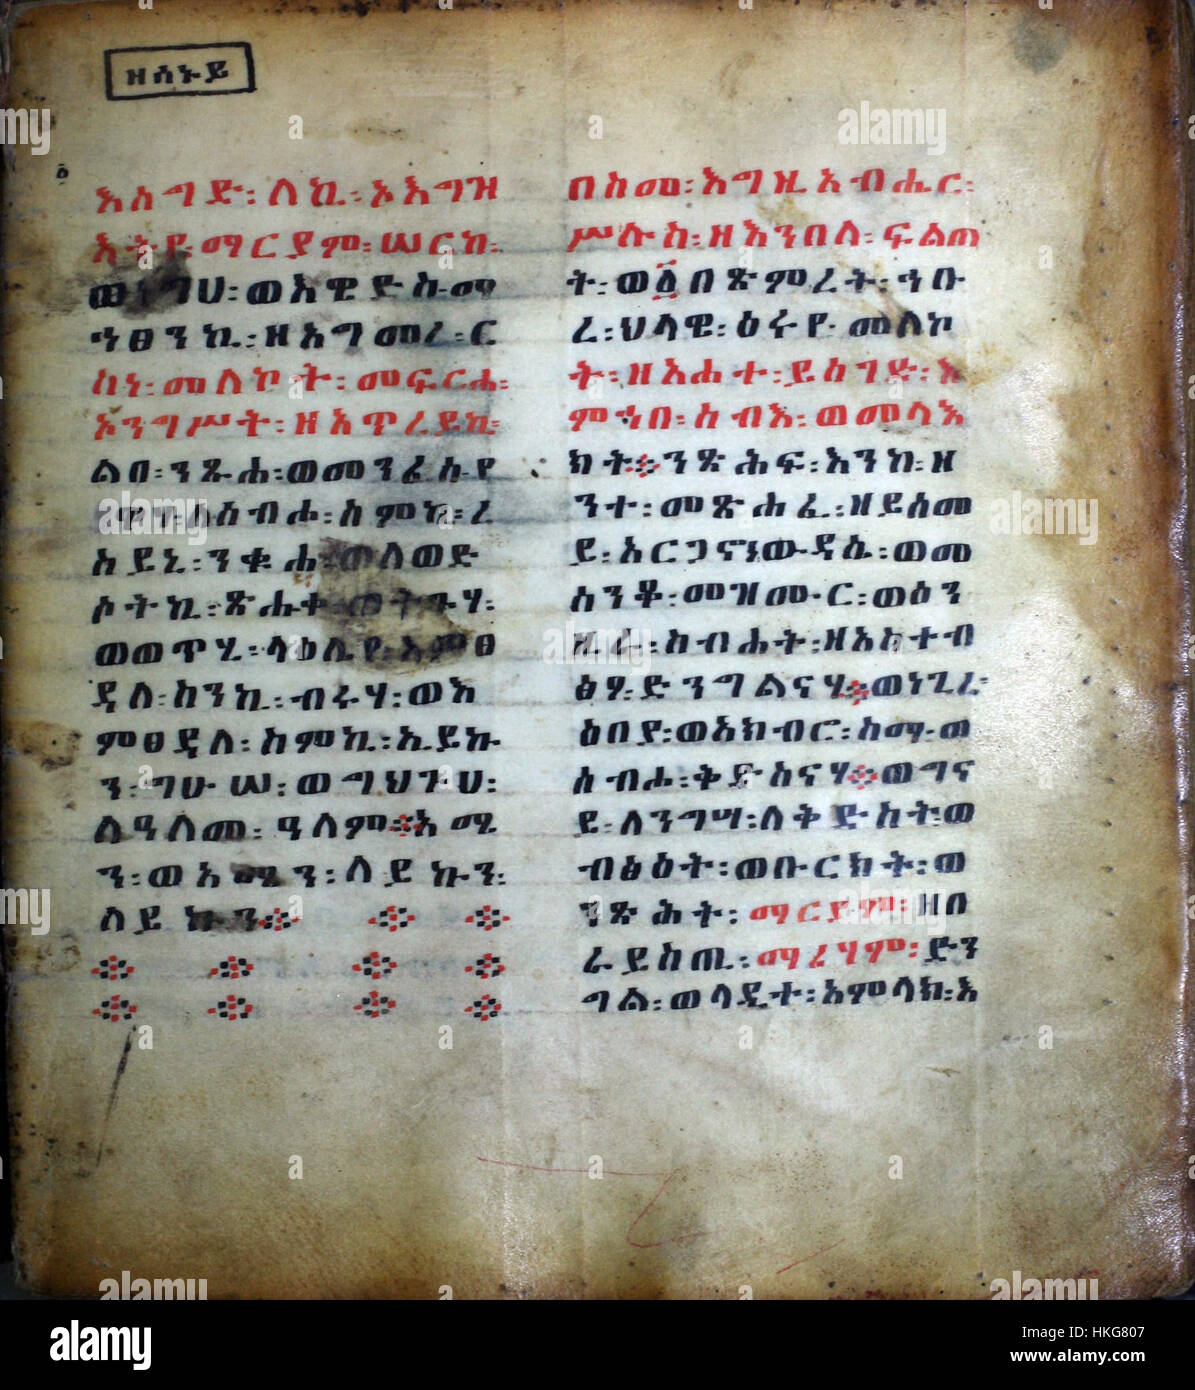 ዘሰኑይ
እሰግድ፡ለኪ፡ኦእግዝ
እትየ፡ማርያም፡ሠርከ፡
ወነግሀ፡ወእዌድስ፡ማ
ኅፀንኪ፡ዘአግመረ፡ር
ስነ፡መለኮት፡መፍርሐ፡
ኦንግሥት፡ዘአጥረይኪ፡
ልበ፡ንጹሐ፡ወመንፈሰ፡የ
ዋሃ፡ሰአብሖ፡ስምኪ፡ረ
ስይኒ፡ንቁሐ፡ወለወድ
ሶትኪ፡ጽሑቀ፡
ወወጥሃ፡ላዕሌየ፡እምፀ
ዳለ፡ከንኪ፡ብሩሃ፡ወእ
ምፀዳለ፡ስምኪ፡ኢይኩ
ን፡ግሁሠ፡ወግህጉሀ፡
ለዓለመ፡ዓለም፨አሜ
ን፡ወአሜን፡ለይኩን፡
ለይኩን፨
በስመ፡እግዚአብሔር፡
ሥሉስ፡ዘእንበለ፡ፍልጠ
ት፡ወ፩በጽምረት፡ኅቡ
ረ፡ህላዌ፡ዕሩየ፡መለኮ
ት፡ዘአሐተ፡ይሰገድ፡እ
ምኀበ፡ሰብእ፡ወመላእ
ክት፨ንጽሕፍ፡እንከ፡ዘ
ንተ፡መጽሐፈ፡ዘይሰመ
ይ፡አርጋኖነ፡ውዳሴ፡ወመ
ሰንቆ፡መዝሙር፡ወዕን
ዚራ፡ስብሐት፡ዘአስተብ
ፅዖ፡ድንግልናሃ፨ወነጊረ፡
ዕበያ፡ወአክብሮ፡ስማ፡ወ
ሰብሖ፡ቅድስናሃ፨ወግና
ይ፡ለንግሣ፡ለቅድስት፡ወ
ብፅዕት፡ወቡርክት፡ወ
ንጽሕት፡ማርያም፡ዘበ
ራይስጢ፡ማሪሃም፡ድን
ግል፡ወላዲተ፡አምላክ፡እ
alamy
a
Image ID: HKG807
www.alamy.com